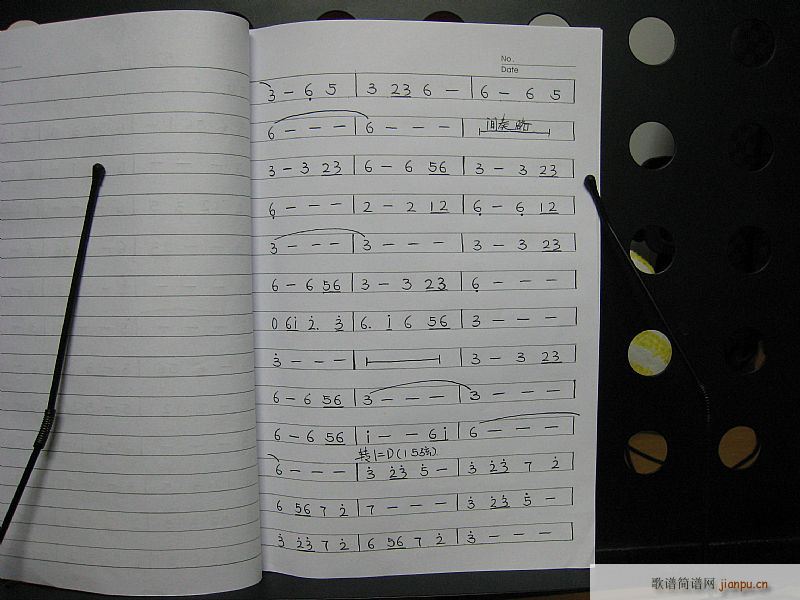 No.
Date
3 - 6̣ 5 | 3 23 6 - | 6 - 6 5
6 - - - | 6 - - - | 间奏
3 - 3 23 | 6 - 6 56 | 3 - 3 23
6̣ - - - | 2 - 2 12 | 6̣ - 6̣ 12
3 - - - | 3 - - - | 3 - 3 23
6 - 6 56 | 3 - 3 23 | 6̣ - - -
0 6i 2̇. 3̇ | 6. i 6 56 | 3 - - -
3̇ - - - | | 3 - 3 23
6 - 6 56 | 3 - - - | 3 - - -
6 - 6 56 | i - - 6i | 6 - - -
转1=D(1 5弦)
6 - - - | 3̇ 2̇3̇ 5̇ - | 3̇ 2̇3̇ 7 2̇
6 56 7 2̇ | 7 - - - | 3̇ 2̇3̇ 5̇ -
3̇ 2̇3̇ 7 2̇ | 6 56 7 2̇ | 3̇ - - -
歌谱简谱网 jianpu.cn